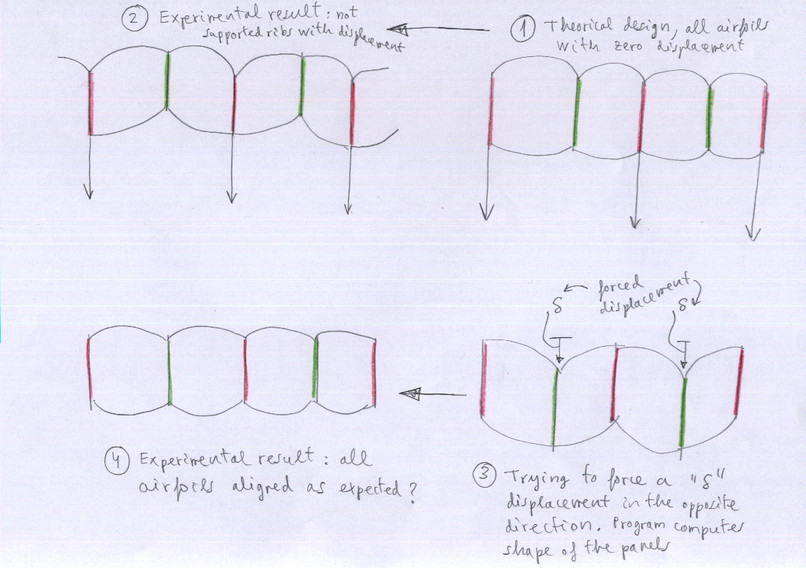 ② Experimental result: not
supported ribs with displacement
① Theorical design, all airfoils
with zero displacement
forced
displacement
δ δ
④ Experimental result: all
airfoils aligned as expected?
③ Trying to force a "δ"
displacement in the opposite
direction. Program computes
shape of the panels